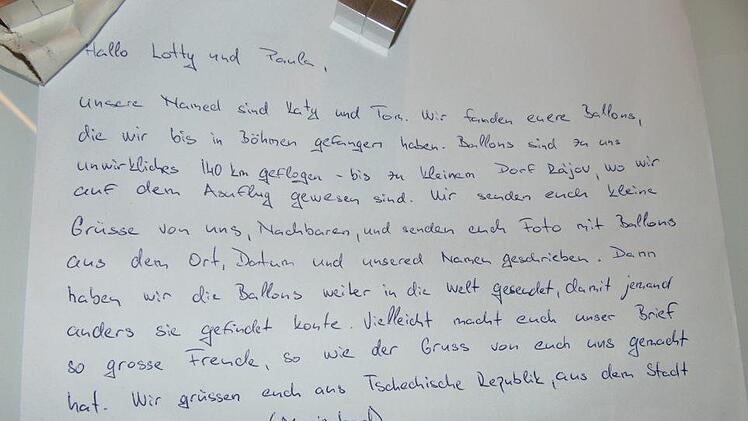 Hallo Lotty und Paula,
unsere Named sind Katy und Tom. Wir fanden euere Ballons,
die wir bis in Böhmen gefangen haben. Ballons sind zu uns
unwirkliches 140 km geflogen - bis zu kleinem Dorf Rájov, wo wir
auf dem Ausflug gewesen sind. Wir senden euch kleine
Grüsse von uns, Nachbaren, und senden euch Foto mit Ballons
aus dem Ort, Datum und unsered Namen geschrieben. Dann
haben wir die Ballons weiter in die Welt gesendet, damit jemand
anders sie gefindet konte. Vielleicht macht euch unser Brief
so grosse Freude, so wie der Gruss von euch uns gemacht
hat. Wir grüssen euch aus Tschechische Republik, aus dem Stadt